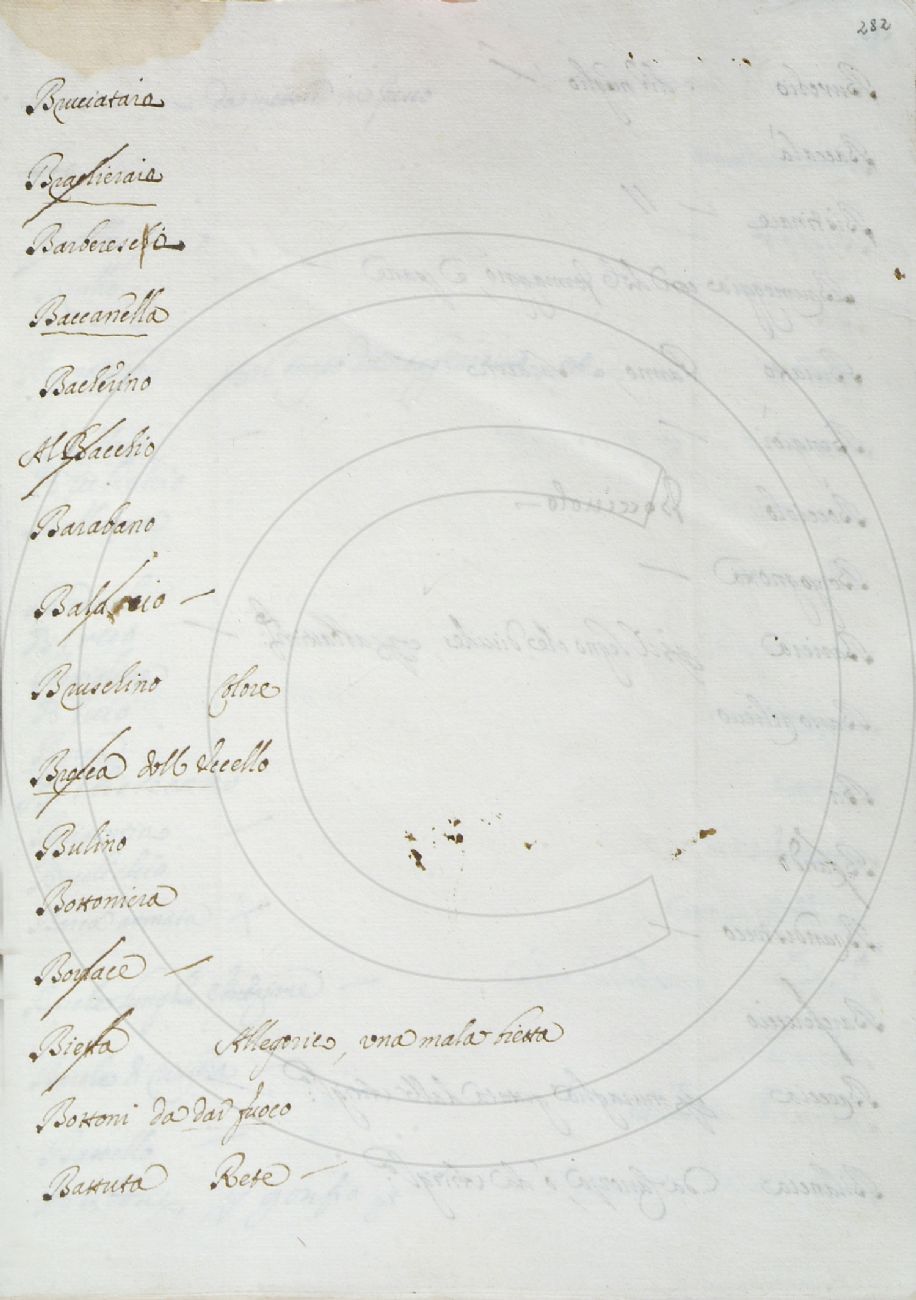 282
Bruciataio
Braghieraio
Barberesco
Baccanella
Bacherino
Al Bacchio
Barabano
Bruschino Colore
Brocca dell Uccello
Bulino
Bottoniera
Borace
Bietta Allegorico, una mala bietta
Bottoni da dar fuoco
Battuta Rete